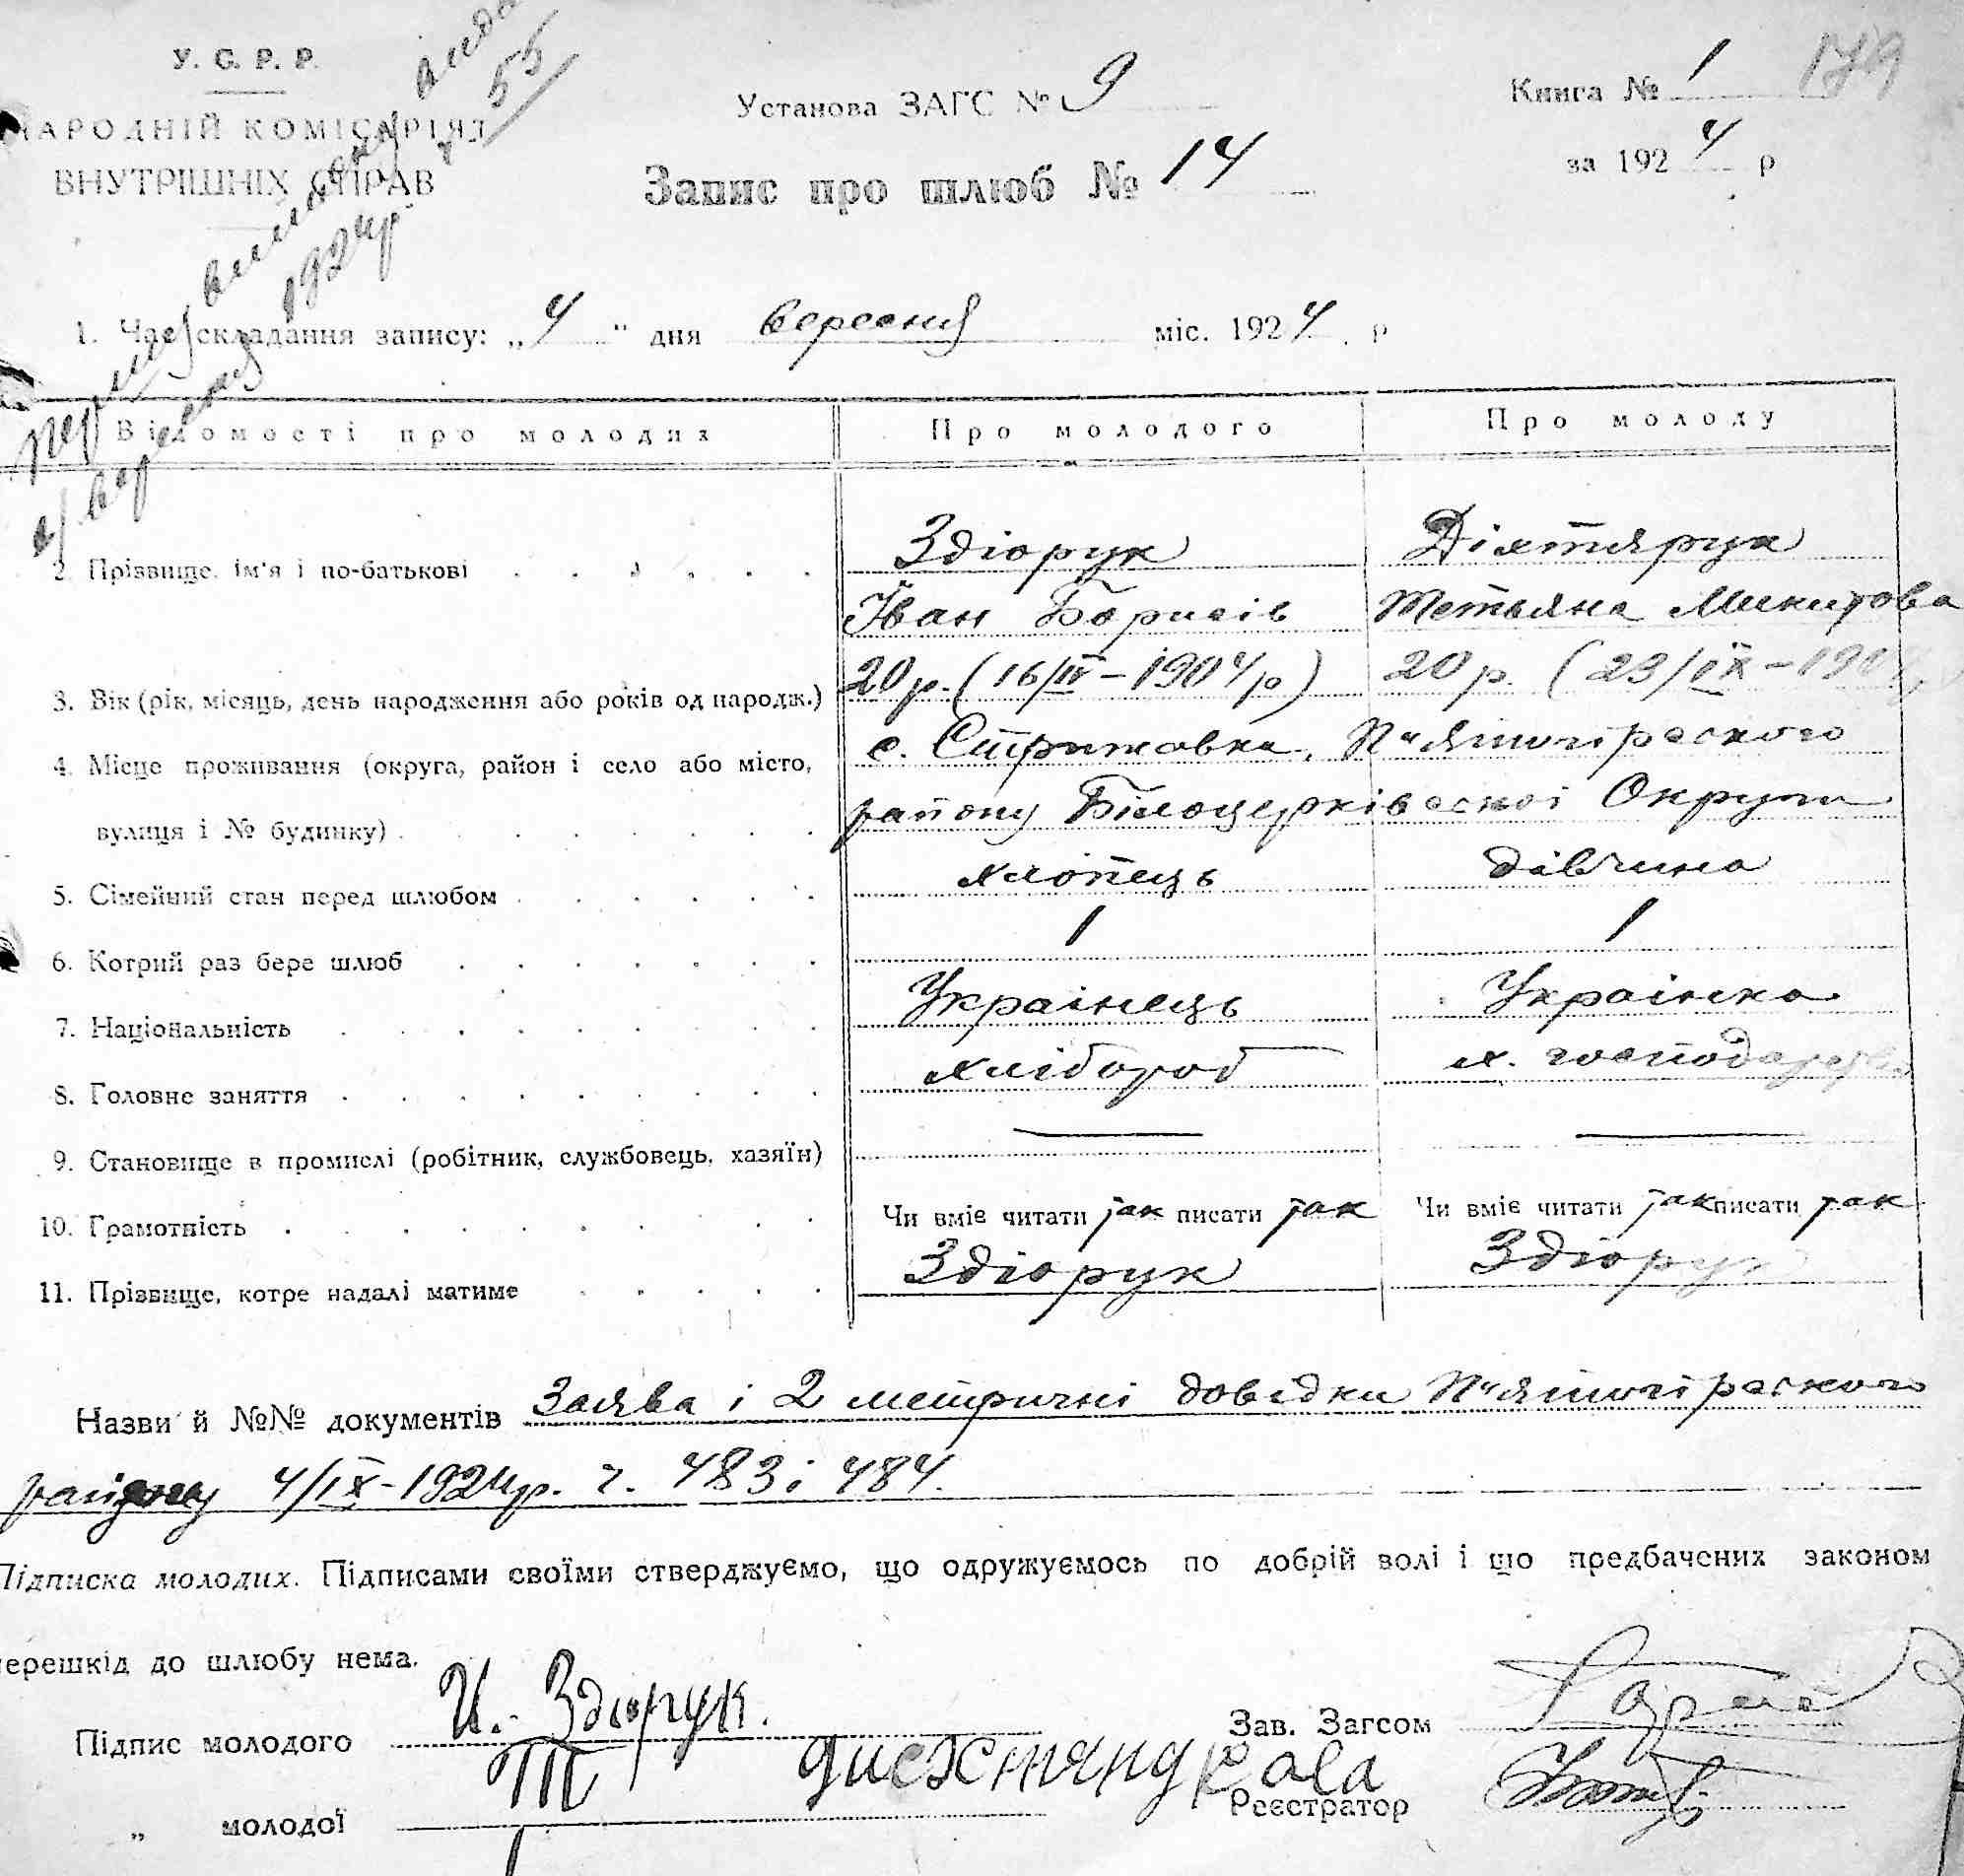 У. С. Р. Р.
НАРОДНІЙ КОМІСАРІЯТ
ВНУТРІШНІХ СПРАВ
Установа ЗАГС № 9
Запис про шлюб № 14
Книга № 1
179
за 1924 р
виписку
55
4/ вересня 1924 р.
1. Час складання запису: „4" дня вересня міс. 1924 р
Відомості про молодих Про молодого Про молоду
Здіорук Діхтярук
2. Прізвище, ім'я і по-батькові
Іван Борисів Тетьяна Микитова
3. Вік (рік, місяць, день народження або років од народж.) 20 р. (16/IV – 1904 р) 20 р. (23/IX – 190
4. Місце проживання (округа, район і село або місто, с. Стрижовка, П'ятигірського
вулиця і № будинку) району Білоцерківської Округи
5. Сімейний стан перед шлюбом хлопець дівчина
6. Котрий раз бере шлюб 1 1
7. Національність Украінець Украінка
8. Головне заняття хлібороб х. господарств
9. Становище в промислі (робітник, службовець, хазяїн) — —
10. Грамотність Чи вміє читати так писати так Чи вміє читати так писати так
11. Прізвище, котре надалі матиме Здіорук Здіорук
Назви й №№ документів Заява і 2 метричні довідки П'ятигірського
району 4/IX-1924 р. ч. 483 і 484.
Підписка молодих. Підписами своїми стверджуємо, що одружуємось по добрій волі і що предбачених законом
перешкід до шлюбу нема.
Підпис молодого И. Здіорук. Зав. Загсом
„ молодої Т Реєстратор